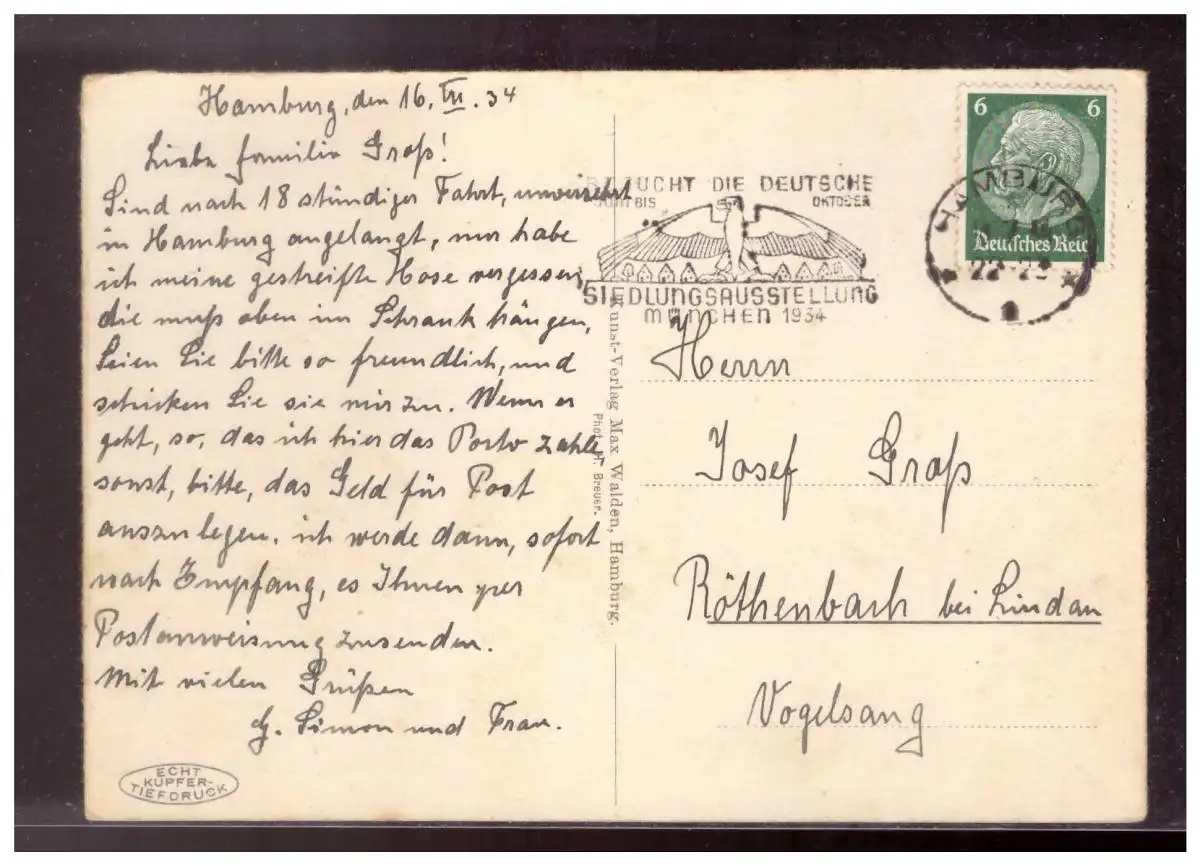 Hamburg, den 16. VII. 34
Liebe Familie Groß!
Sind nach 18 stündiger Fahrt, unversehrt
in Hamburg angelangt, nur habe
ich meine gestreifte Hose vergessen,
die muß oben im Schrank hängen,
Seien Sie bitte so freundlich, und
schicken Sie sie mir zu. Wenn es
geht, so, das ich hier das Porto zahle,
sonst, bitte, das Geld für Post
auszulegen, ich werde dann, sofort
nach Empfang, es Ihnen per
Postanweisung zusenden.
Mit vielen Grüßen
G. Simon und Frau.
ECHT
KUPFER-
TIEFDRUCK
Kunst-Verlag Max Walden, Hamburg.
Phot. H. Breuer.
BESUCHT DIE DEUTSCHE
JUNI BIS OKTOBER
SIEDLUNGSAUSSTELLUNG
MÜNCHEN 1934
6 6
Deutsches Reich
HAMBURG
22-23
1
Herrn
Josef Groß
Röthenbach bei Lindau
Vogelsang